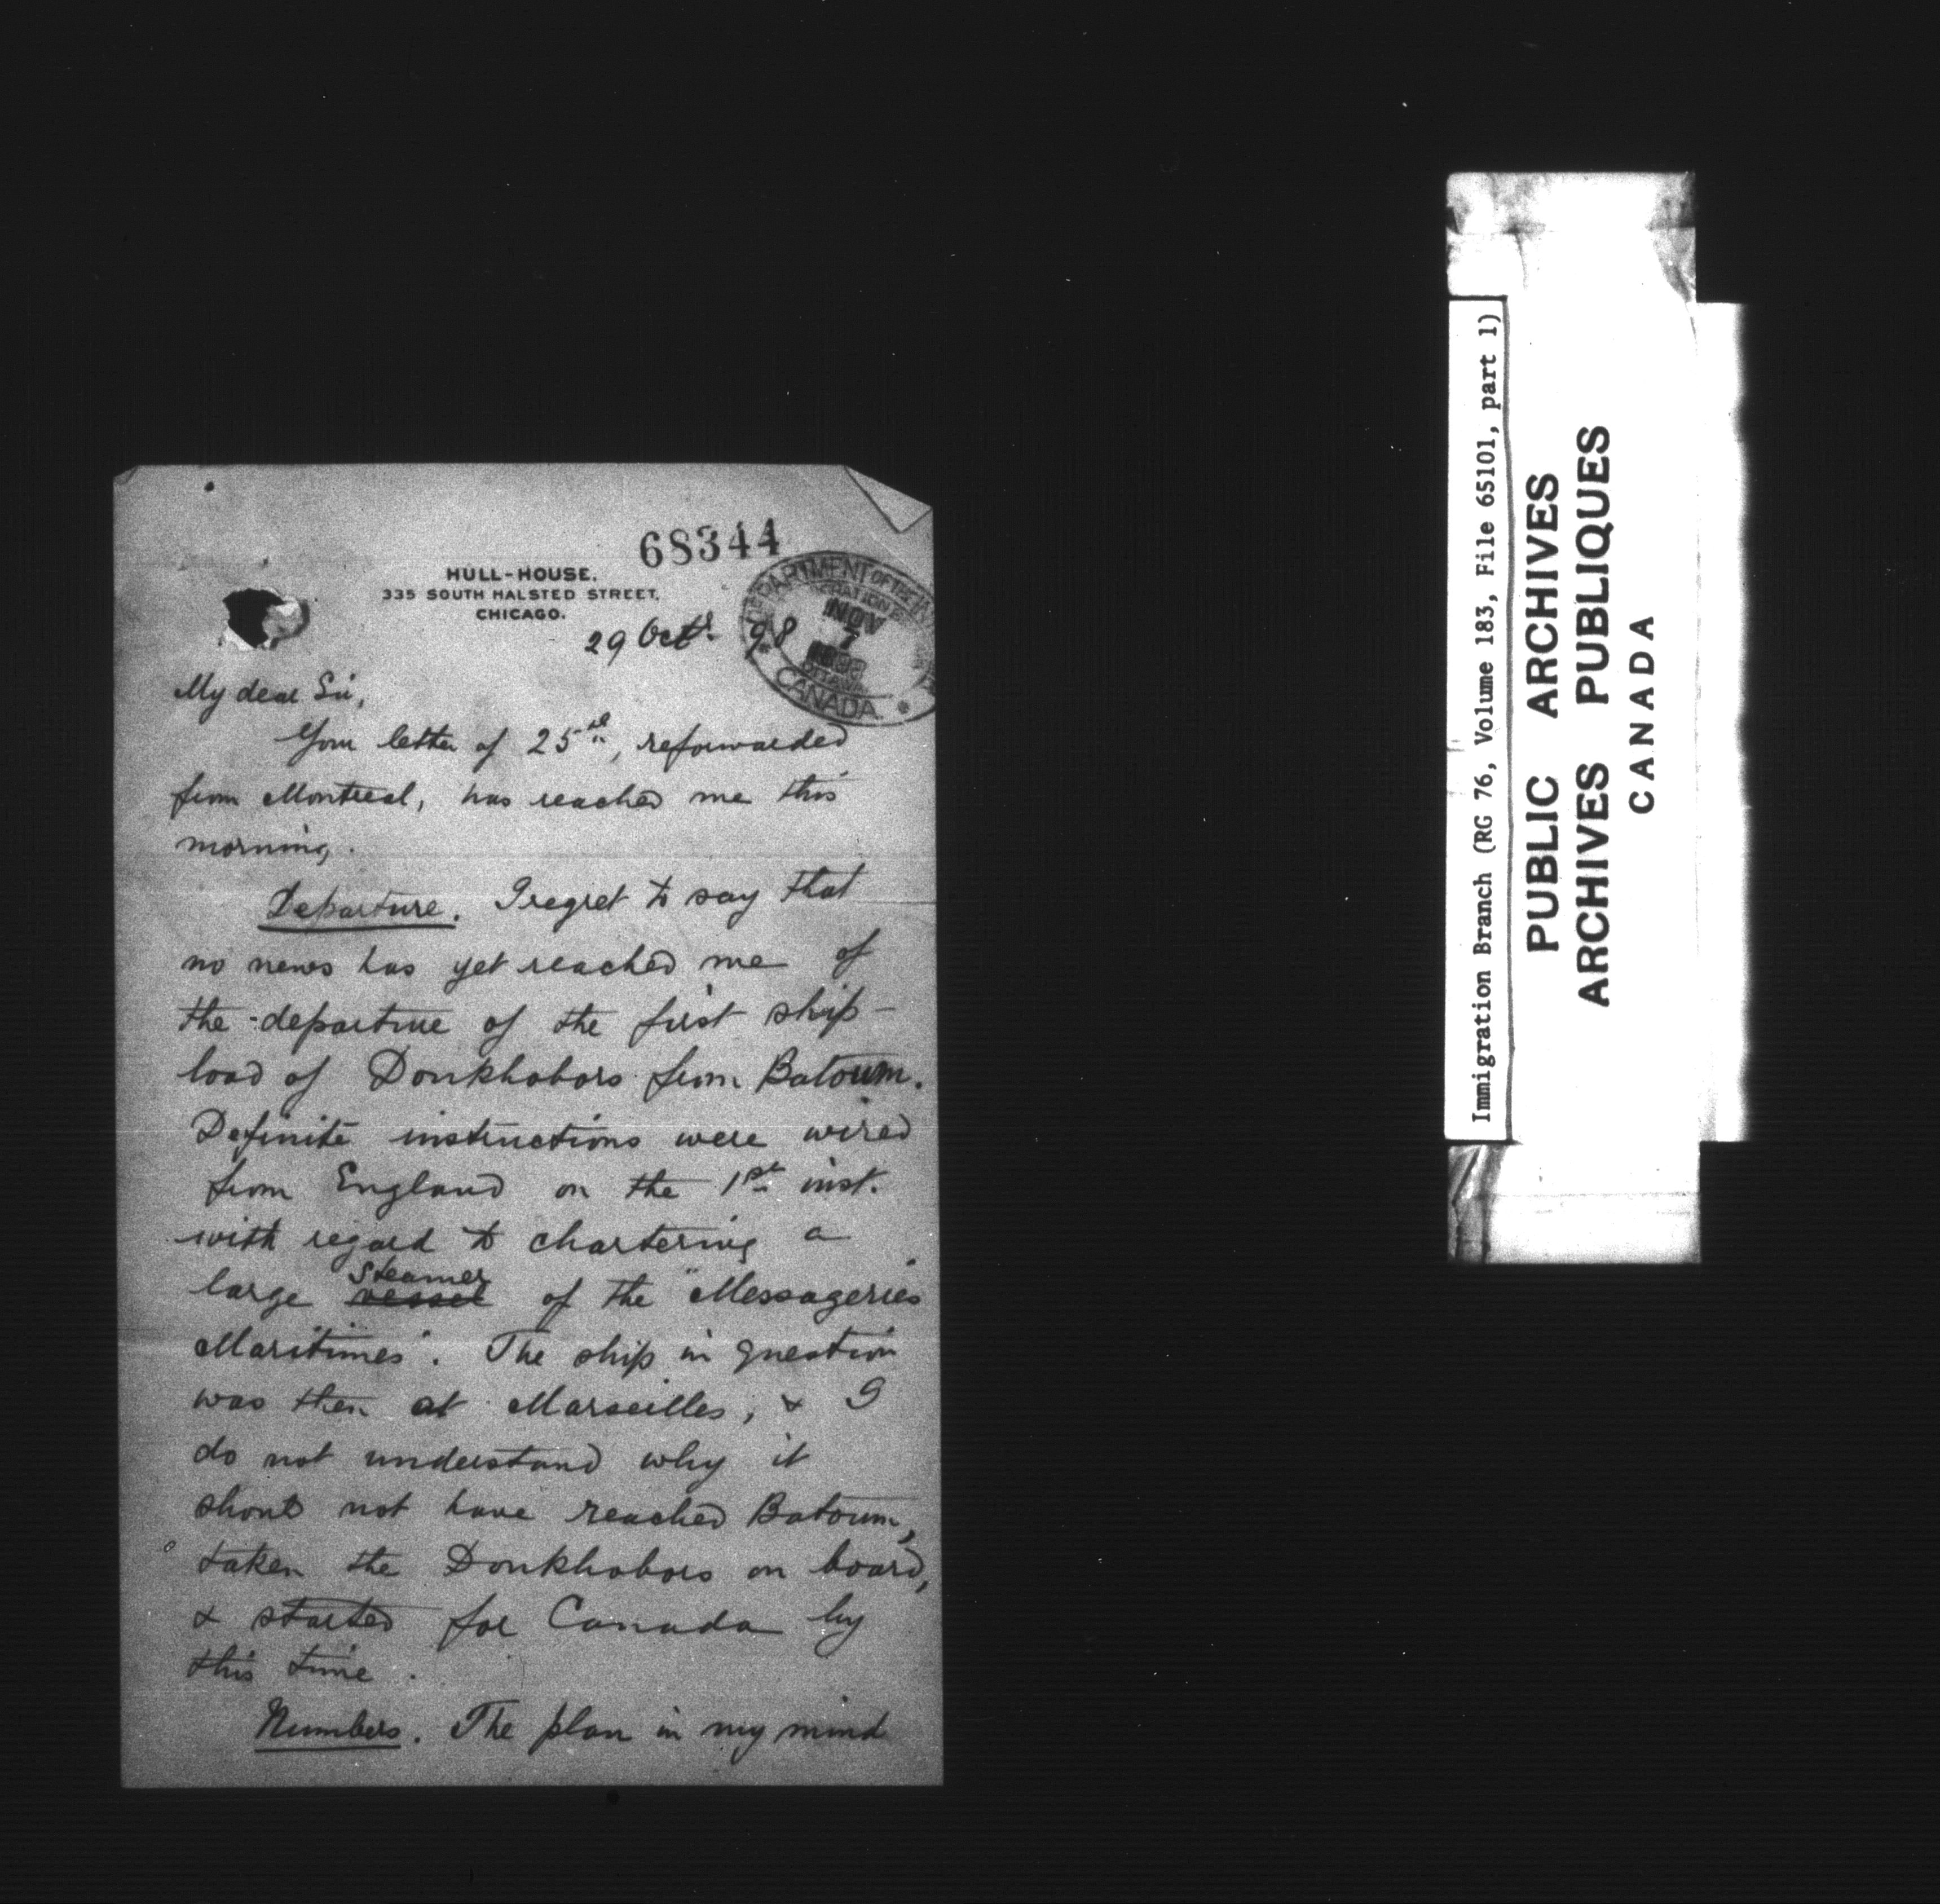 68344
HULL-HOUSE.
335 SOUTH HALSTED STREET,
CHICAGO.
29 Oct. 98
DEPARTMENT OF THE
NOV
7
CANADA
My dear Sir,
Your letter of 25th, reforwarded
from Montreal, has reached me this
morning.
Departure. I regret to say that
no news has yet reached me of
the departure of the first ship-
load of Doukhobors from Batoum.
Definite instructions were wired
from England on the 1st inst.
with regard to chartering a
large vessel steamer of the "Messageries
Maritimes". The ship in question
was then at Marseilles, & I
do not understand why it
should not have reached Batoum,
taken the Doukhobors on board,
& started for Canada by
this time.
Numbers. The plan in my mind
Immigration Branch (RG 76, Volume 183, File 65101, part 1)
PUBLIC ARCHIVES
ARCHIVES PUBLIQUES
CANADA